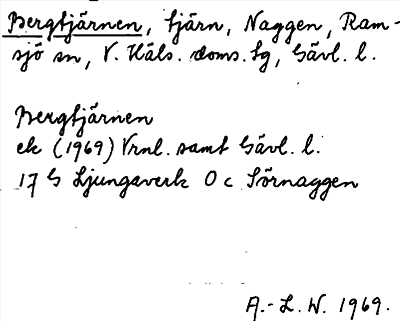 Bergtjärnen, tjärn, Naggen, Ram-
sjö sn, V. Häls. doms. tg, Gävl. l.
Bergtjärnen
ek (1969) Vrnl. samt Gävl. l.
17 G Ljungaverk 0 c Sörnaggen
A.-L. W. 1969.